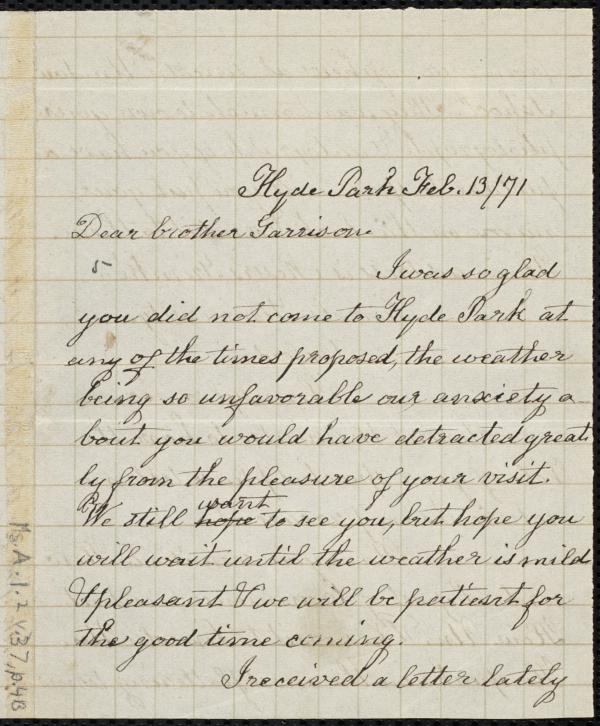 Hyde Park Feb. 13/71
Dear brother Garrison.
5
I was so glad
you did not come to Hyde Park at
any of the times proposed, the weather
being so unfavorable our anxiety a
bout you would have detracted great
ly from the pleasure of your visit.
We still hope want to see you, but hope you
will wait until the weather is mild
& pleasant & we will be patient for
the good time coming.
I received a letter lately
Ms. A. 1. 2 v. 37, p. 4B